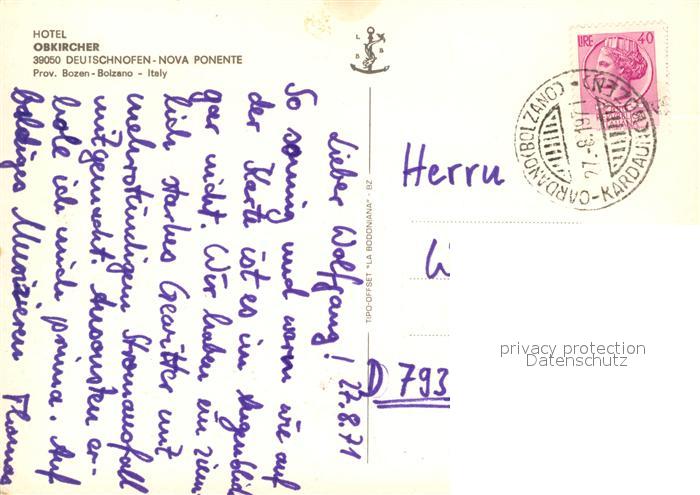 HOTEL
OBKIRCHER
39050 DEUTSCHNOFEN - NOVA PONENTE
Prov. Bozen - Bolzano - Italy
L B B S
LIRE 40
CARDANO (BOLZANO) - KARDAUN (BOZEN)
27.-8.1971
TIPO-OFFSET "LA BODONIANA" - BZ
27.8.71
Lieber Wolfgang!
So sonnig und warm wie auf
der Karte ist es im Augenblick
gar nicht. Wir haben ein ziem-
lich starkes Gewitter mit
mehrstündigem Stromausfall
mitgemacht. Ansonsten er-
hole ich mich prima. Auf
baldiges Musizieren
Thomas
Herrn
W
D 793
privacy protection
Datenschutz